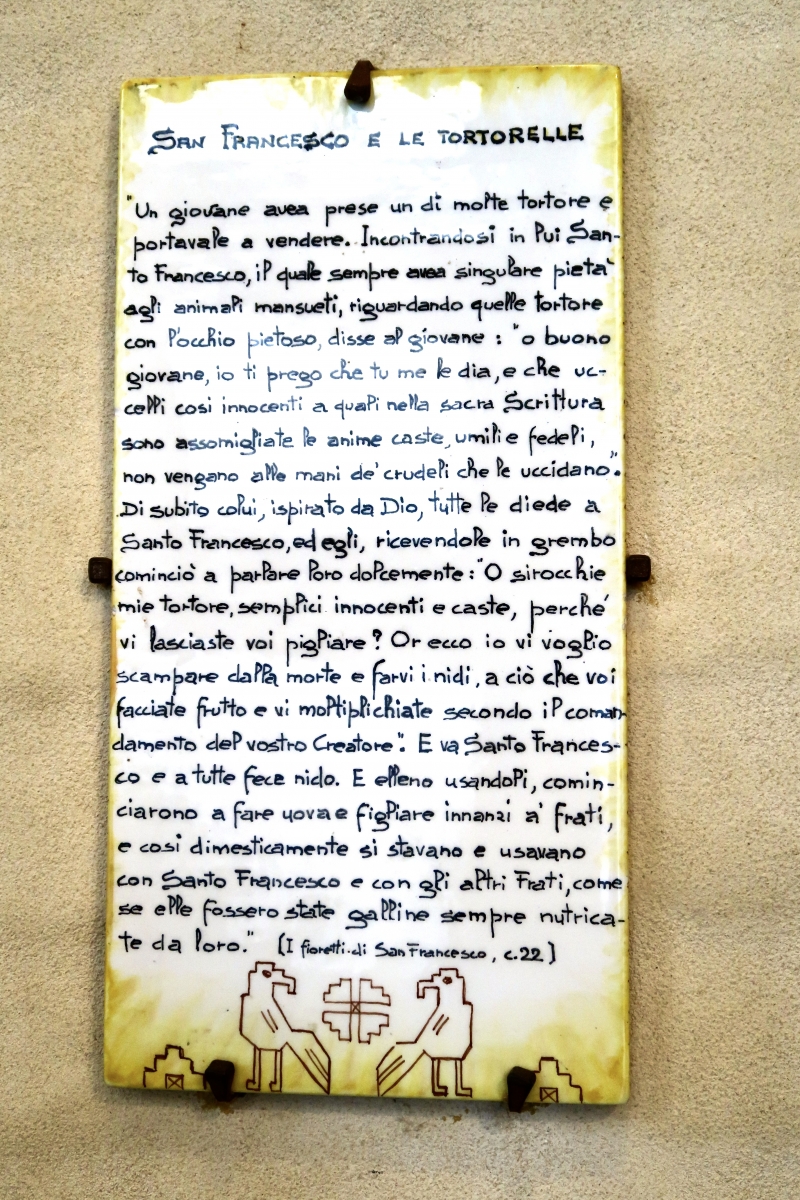 SAN FRANCESCO E LE TORTORELLE
"Un giovane avea prese un dì molte tortore e
portavale a vendere. Incontrandosi in lui San-
to Francesco, il quale sempre avea singulare pietà
agli animali mansueti, riguardando quelle tortore
con l'occhio pietoso, disse al giovane : "o buono
giovane, io ti prego che tu me le dia, e che uc-
celli cosi innocenti a quali nella sacra Scrittura
sono assomigliate le anime caste, umili e fedeli,
non vengano alle mani de' crudeli che le uccidano".
Di subito colui, ispirato da Dio, tutte le diede a
Santo Francesco, ed egli, ricevendole in grembo
cominciò a parlare loro dolcemente: "O sirocchie
mie tortore, semplici innocenti e caste, perché
vi lasciaste voi pigliare? Or ecco io vi voglio
scampare dalla morte e farvi i nidi, a ciò che voi
facciate frutto e vi moltiplichiate secondo il coman-
damento del vostro Creatore". E va Santo Frances-
co e a tutte fece nido. E elleno usandoli, comin-
ciarono a fare uova e figliare innanzi a' frati,
e cosi dimesticamente si stavano e usavano
con Santo Francesco e con gli altri Frati, come
se elle fossero state galline sempre nutrica-
te da loro." (I fioretti di San Francesco, c.22)